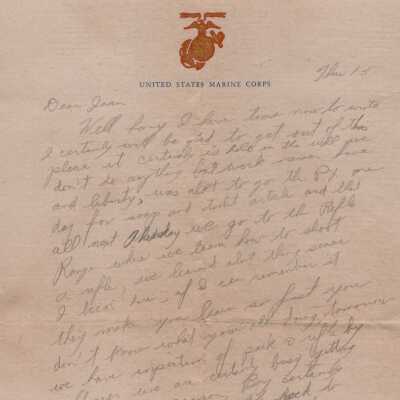 UNITED STATES MARINE CORPS
Dear Jean
Well hony I have time now to write
I certainly will be glad to get out of this
place it certainly is hell in the
don't do anything but work never have
any liberty, was alout to go the PX one
day for soap and toilet article and that
all next we go to the Rifle
Range where we learn how to shoot
a rifle, we learned alot thing since
I been here, if I can remember it
they make you learn so fast you
don't know what your doing, tomorrow
we have inspection of pack & rifle by
we are certainly busy getting
By certainly
to